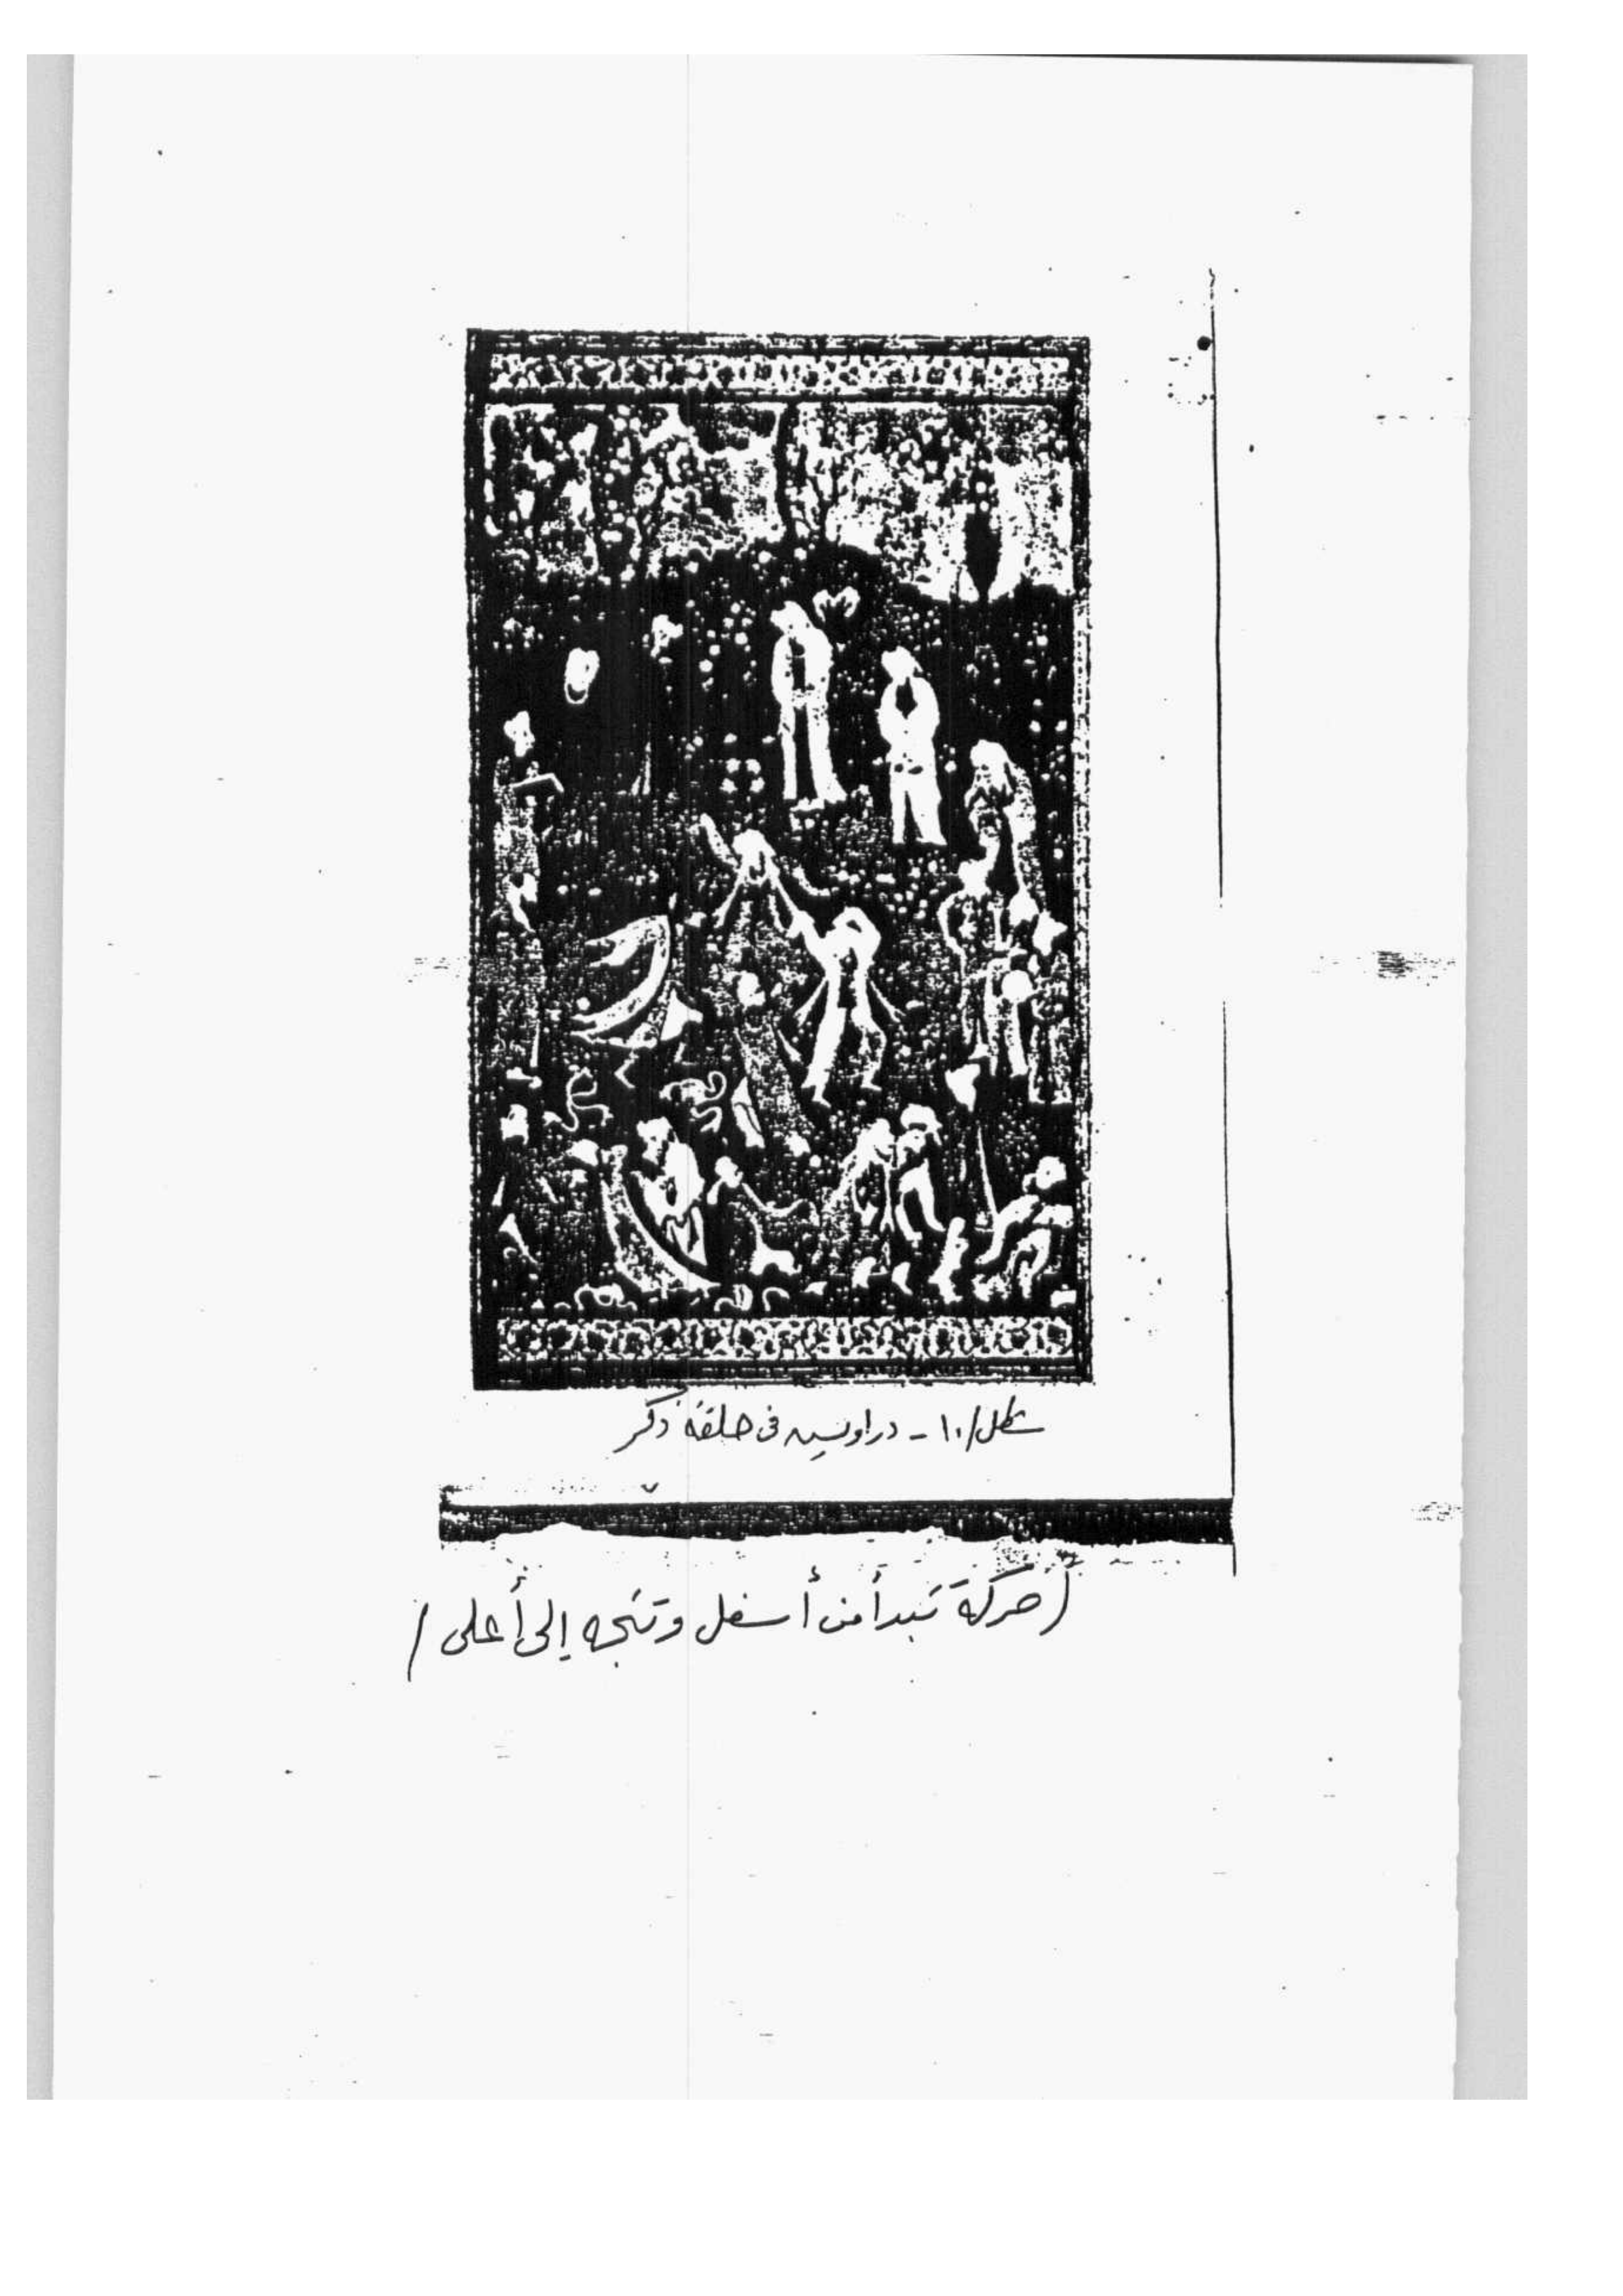 شكل/١٠ - دراويش فى حلقة ذكر
(حركة تبدأ من أسفل وتتجه إلى أعلى)